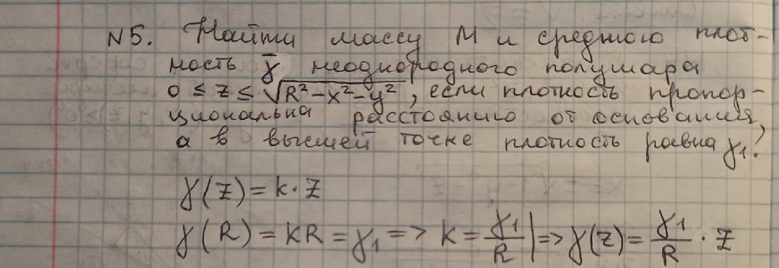 N5. Найти массу М и среднюю плот-
ность γ̄ неоднородного полушара
0 ≤ z ≤ √(R²-x²-y²), если плотность пропор-
циональна расстоянию от основания,
а в высшей точке плотность равна γ₁?
γ(z) = k·z
γ(R) = kR = γ₁ => k = γ₁/R | => γ(z) = γ₁/R · z